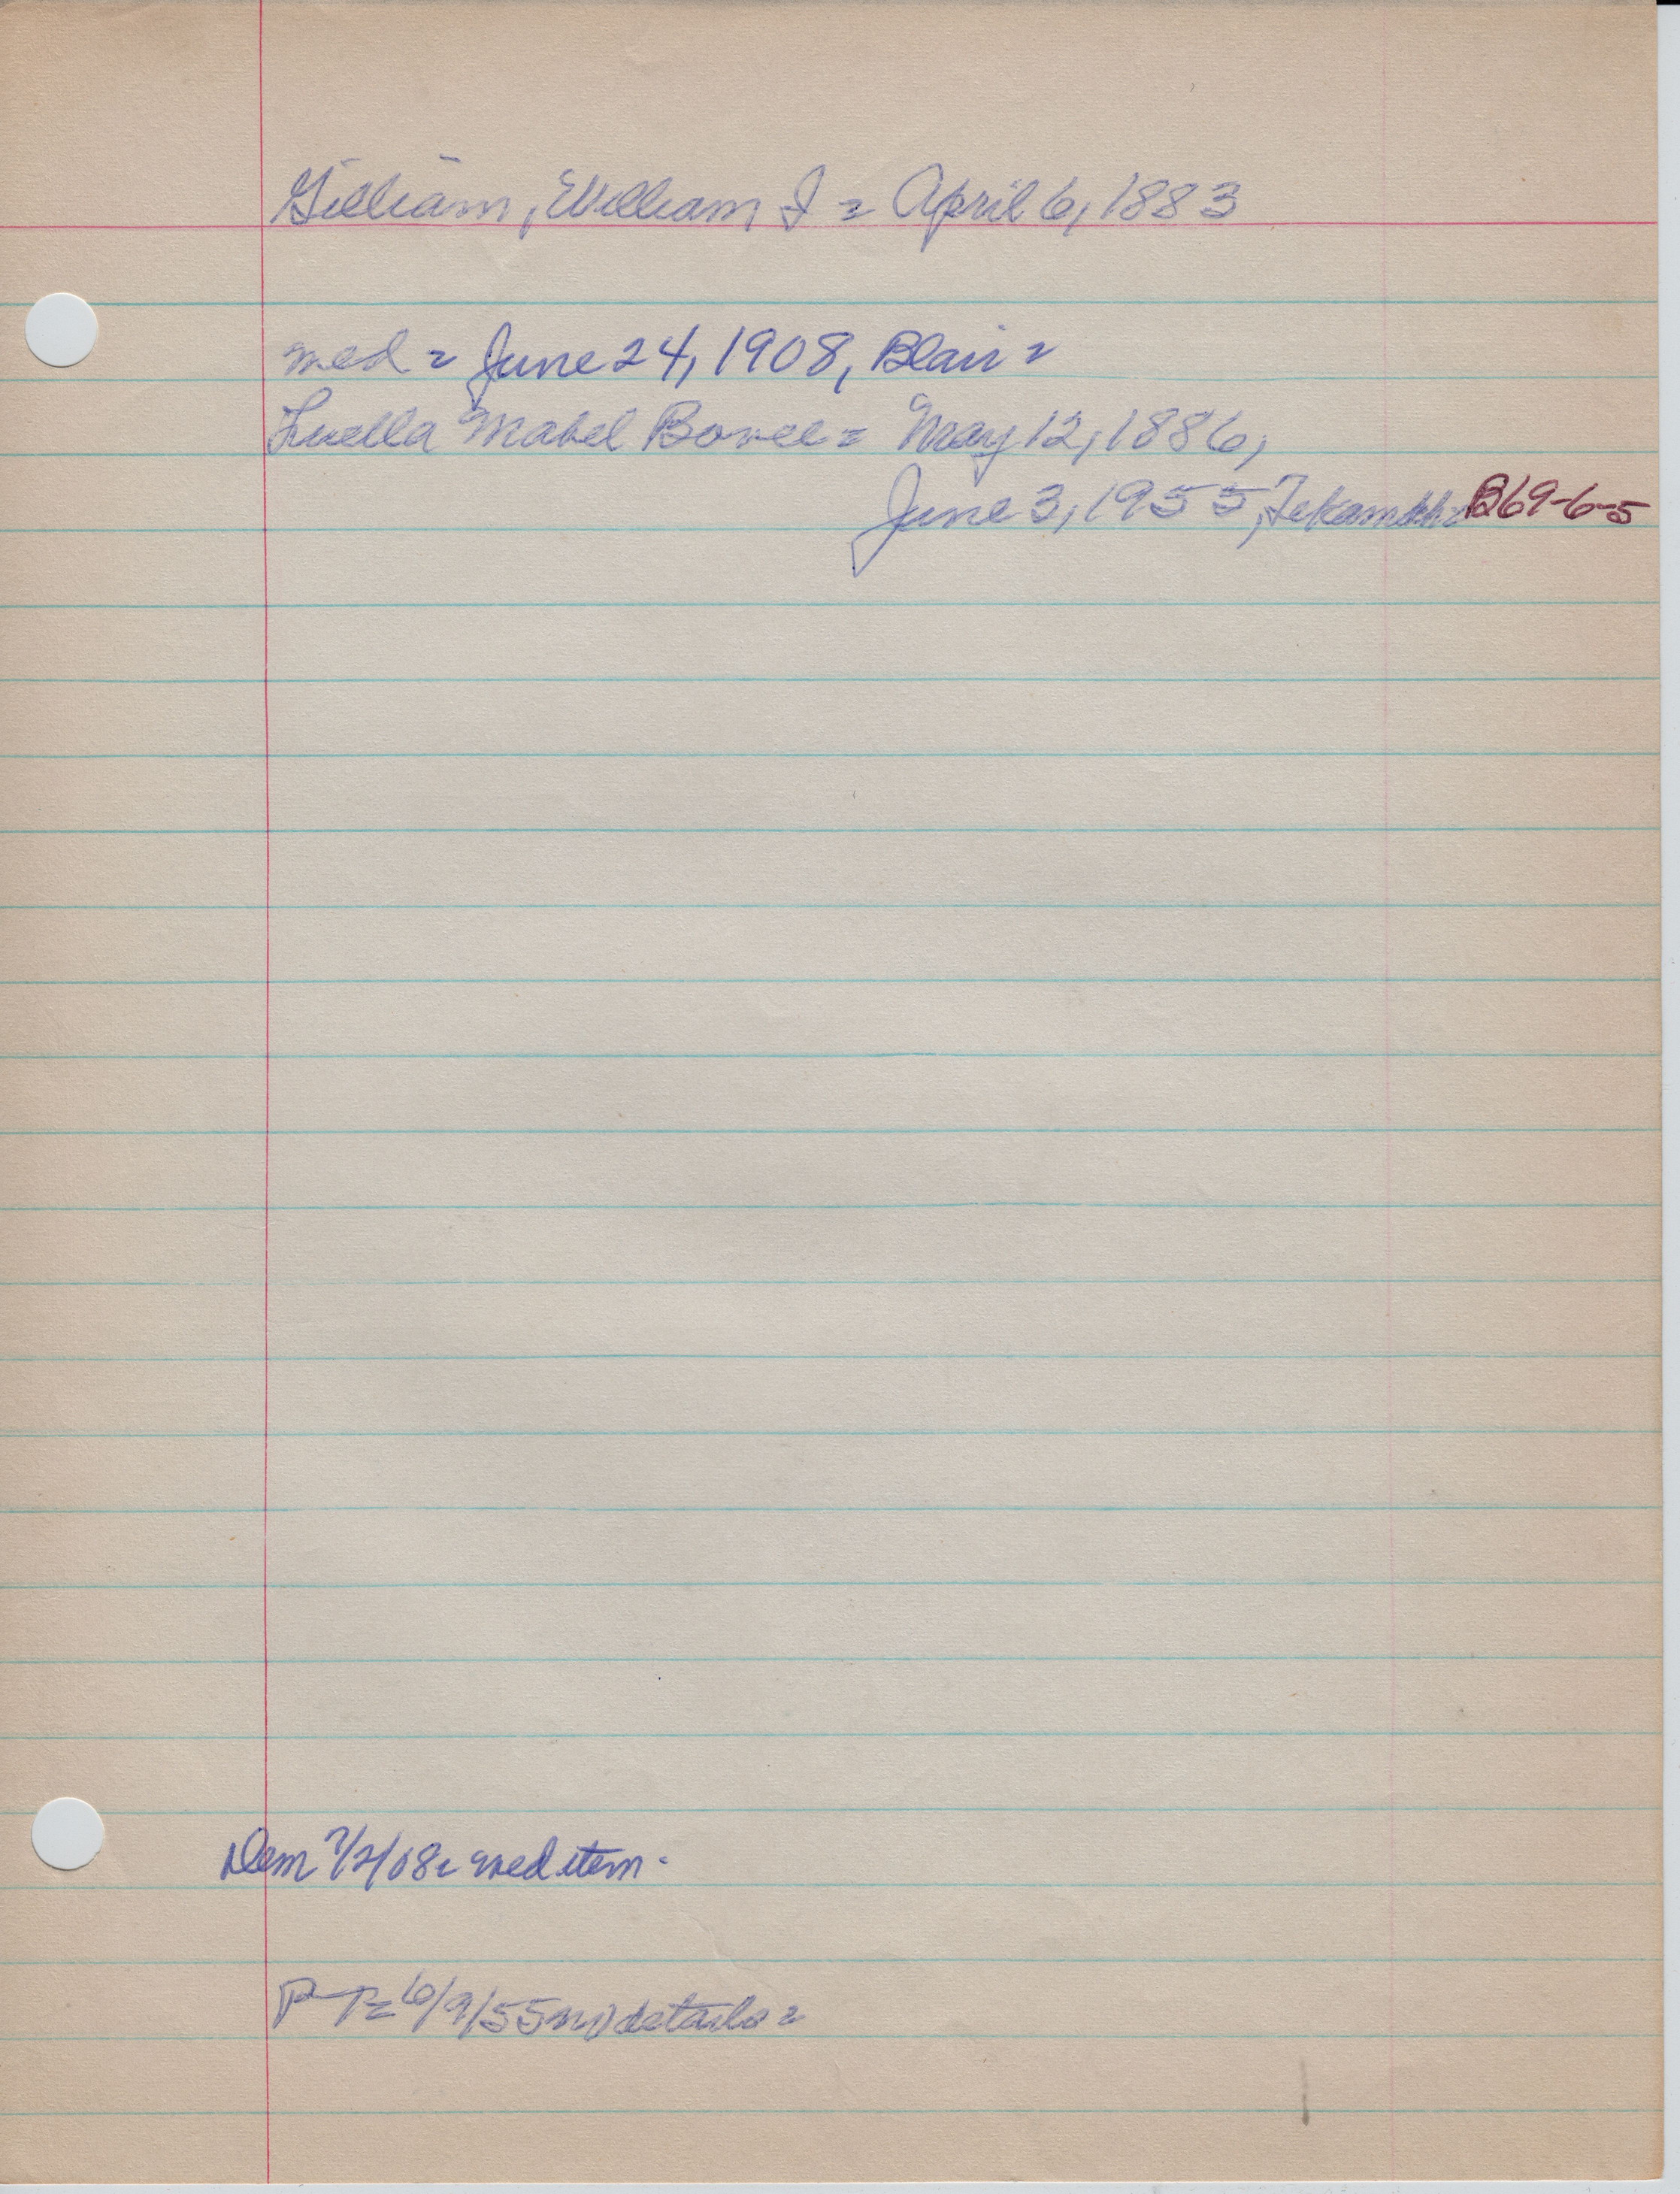 Gilliam, William J = April 6, 1883
med = June 24, 1908, Blair =
Luella Mabel Bovee = May 12, 1886,
June 3, 1955, Tekamah = B69-6-5
Dem 7/2/08 = med item -
P-T = 6/9/55 no details =